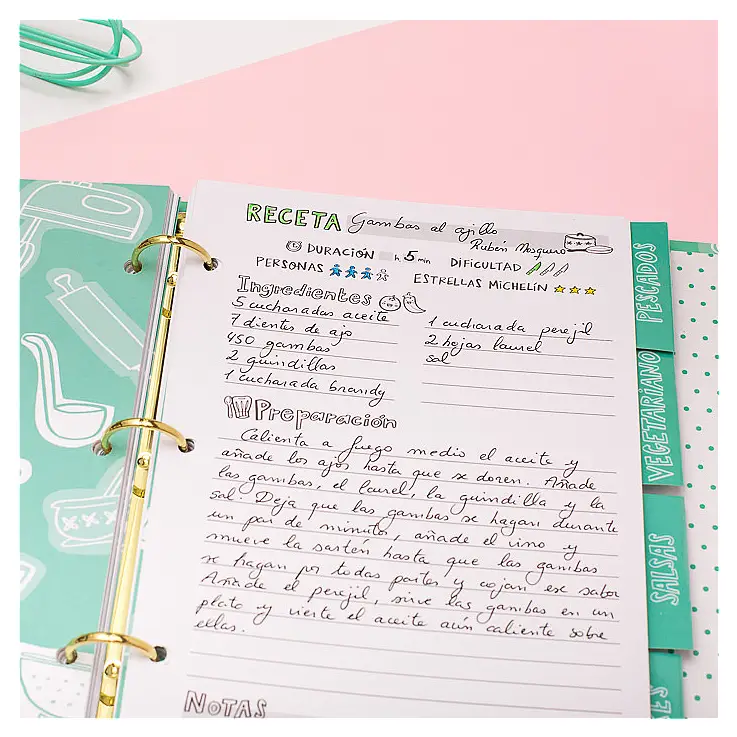 RECETA Gambas al ajillo
Rubén Mosquero
DURACIÓN h 5 min DIFICULTAD
PERSONAS ESTRELLAS MICHELÍN
Ingredientes
5 cucharadas aceite
7 dientes de ajo
450 gambas
2 guindillas
1 cucharada brandy
1 cucharada perejil
2 hojas laurel
sal
Preparación
Calienta a fuego medio el aceite y
añade los ajos hasta que se doren. Añade
las gambas, el laurel, la guindilla y la
sal. Deja que las gambas se hagan durante
un par de minutos, añade el vino y
mueve la sartén hasta que las gambas
se hagan por todas partes y cojan ese sabor
Añade el perejil, sirve las gambas en un
plato y vierte el aceite aún caliente sobre
ellas.
NOTAS
PESCADOS
VEGETARIANO
SALSAS
ES